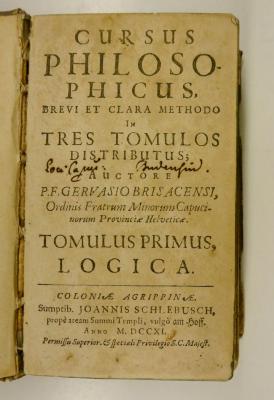 CURSUS
PHILOSO-
PHICUS,
BREVI ET CLARA METHODO
IN
TRES TOMULOS
DISTRIBUTUS;
AUCTORE
P.F. GERVASIO BRISACENSI,
Ordinis Fratrum Minorum Capuci-
norum Provinciæ Helveticæ.
TOMULUS PRIMUS,
LOGICA.
COLONIÆ AGRIPPINÆ.
Sumptib. JOANNIS SCHLEBUSCH,
propè aream Summi Templi, vulgò am Hoff.
ANNO M. DCCXI.
Permissu Superior. & speciali Privilegio S.C. Majest.